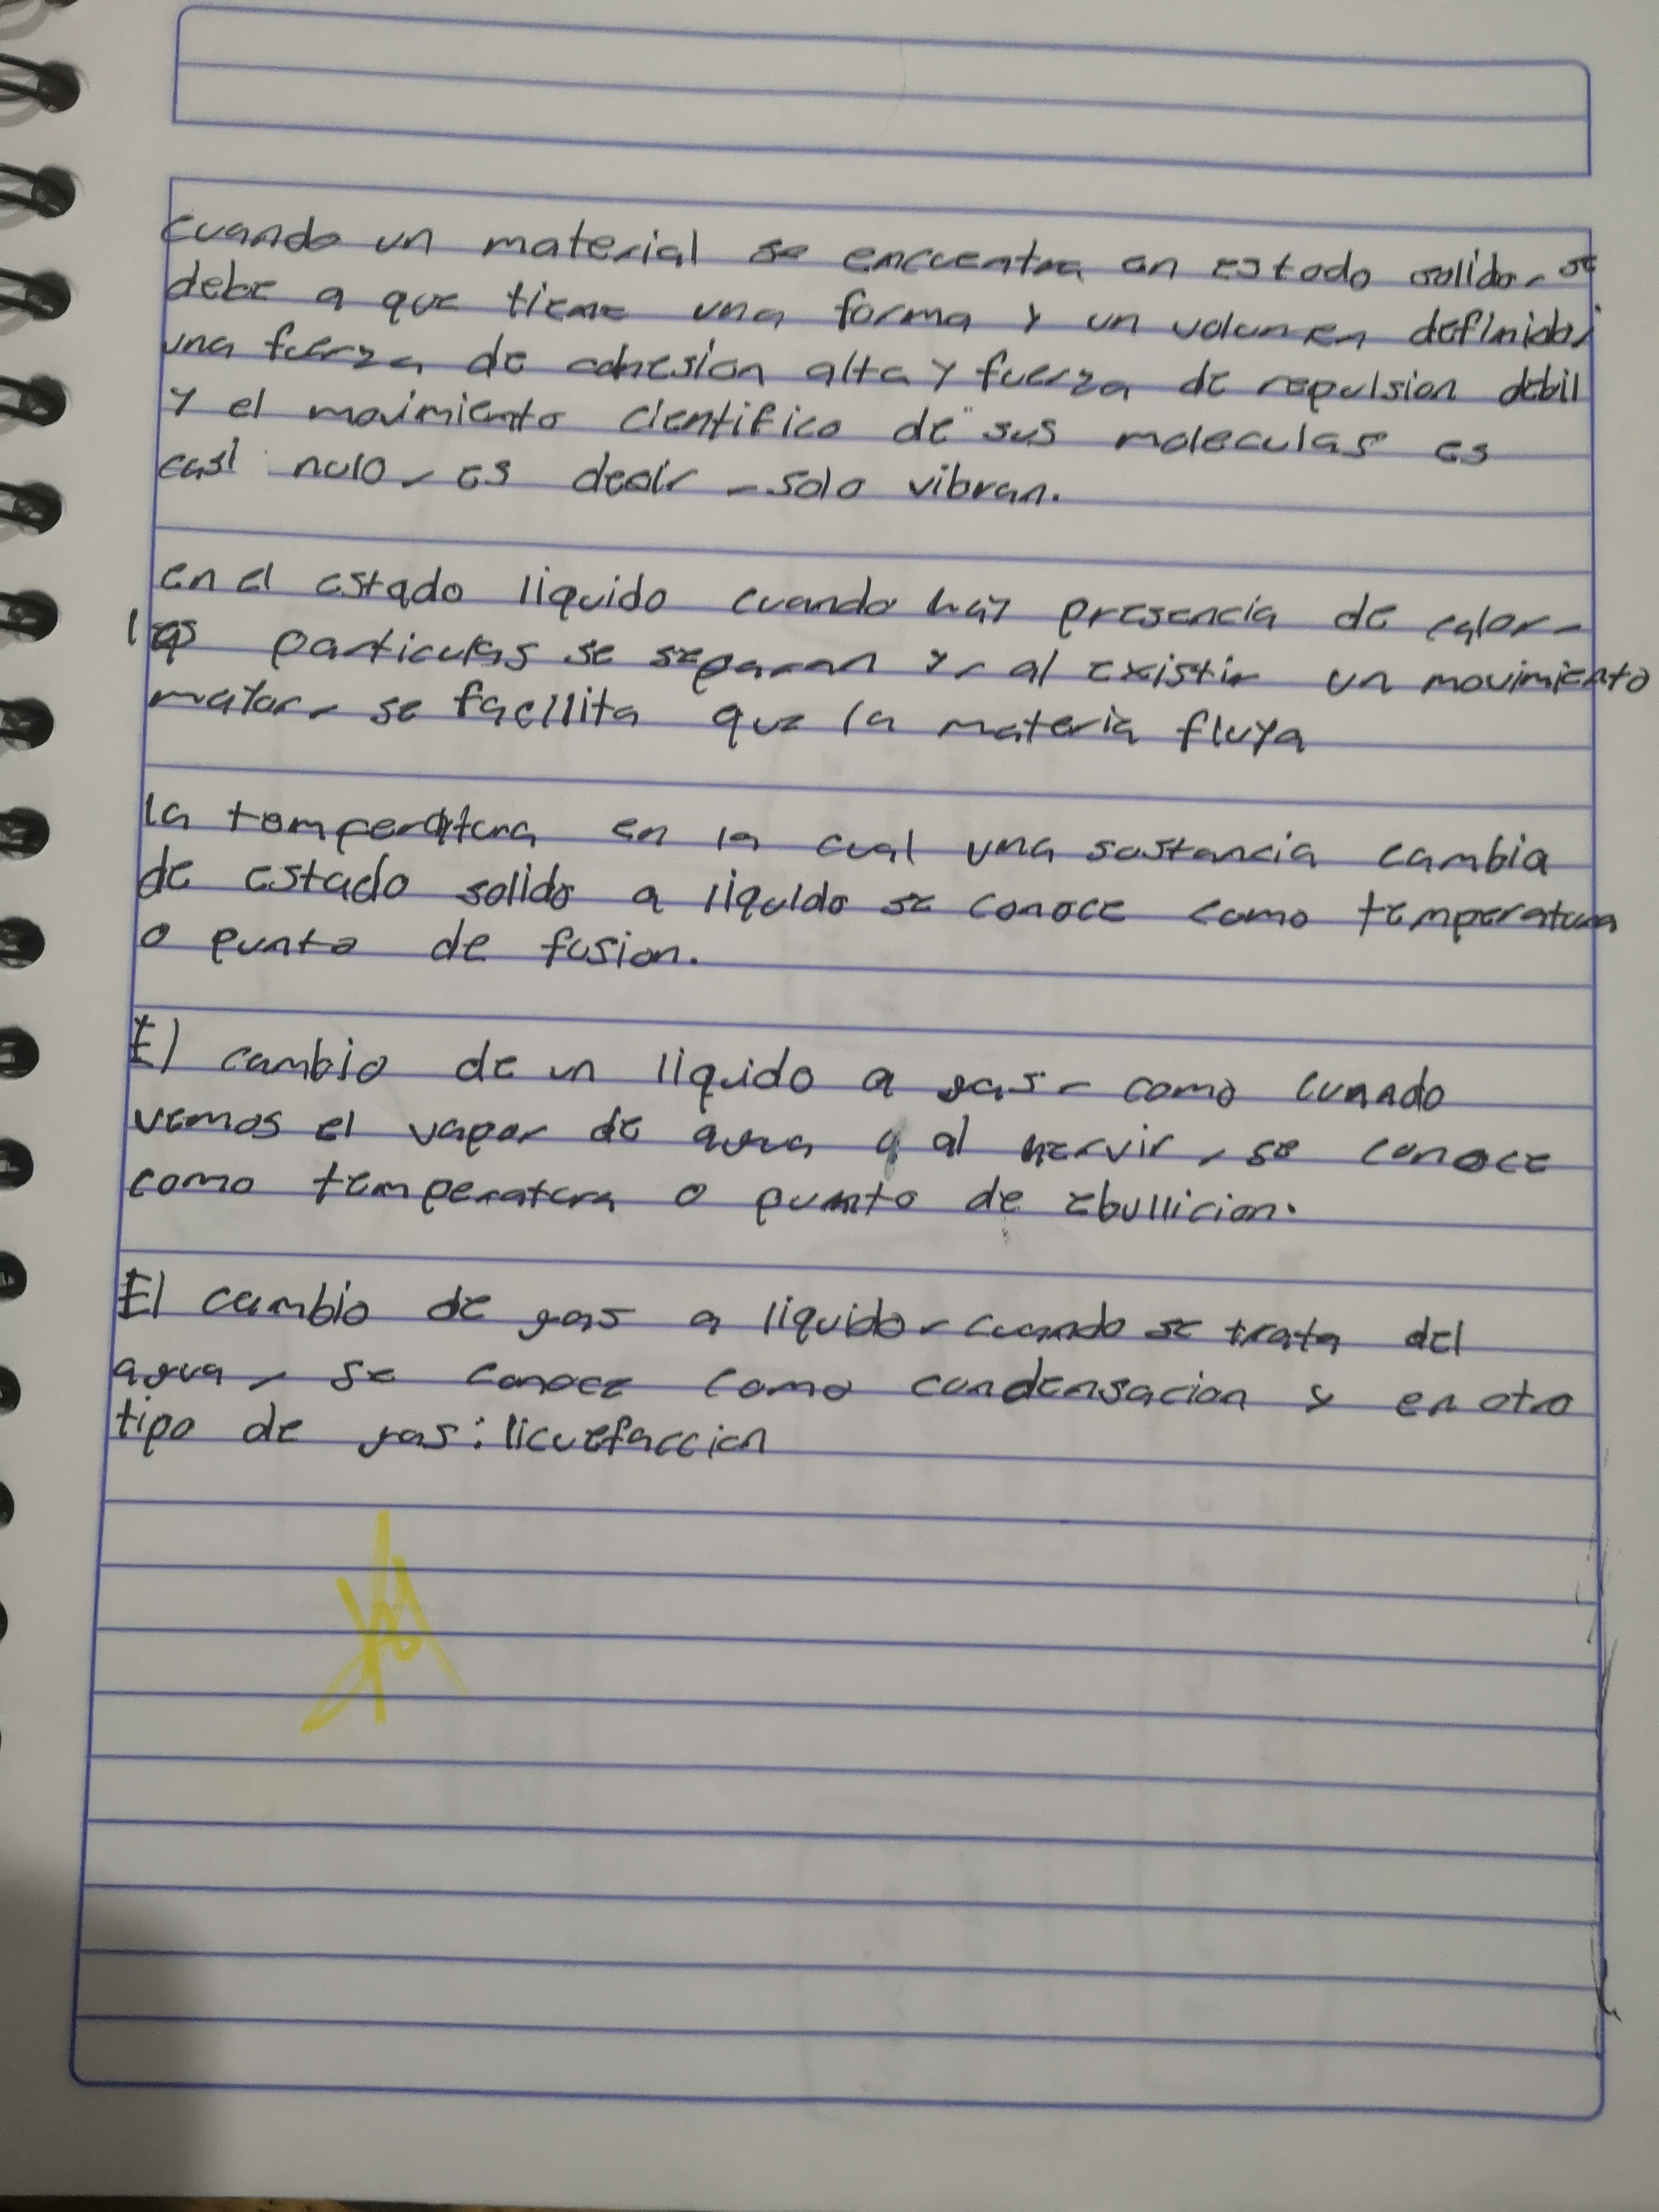 cuando un material se encuentra en estado solido, se
debe a que tiene una forma y un volumen definido,
una fuerza de cohesion alta y fuerza de repulsion debil
y el movimiento cientifico de sus moleculas es
casi nulo, es decir, solo vibran.
en el estado liquido cuando hay presencia de calor,
las particulas se separan y, al existir un movimiento
mayor, se facilita que la materia fluya
la temperatura en la cual una sustancia cambia
de estado solido a liquido se conoce como temperatura
o punto de fusion.
El cambio de un liquido a gas, como cuando
vemos el vapor de agua al hervir, se conoce
como temperatura o punto de ebullicion.
El cambio de gas a liquido, cuando se trata del
agua, se conoce como condensacion y en otro
tipo de gas: licuefaccion